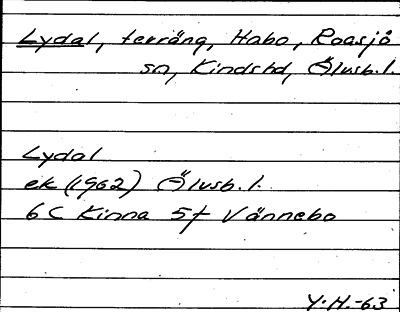 Lydal, terräng, Habo, Roasjö
sn, Kindshd, Älvsb.l.
Lydal
ek (1962) Älvsb.l.
6C Kinna 5f Vännebo
Y.H.-63